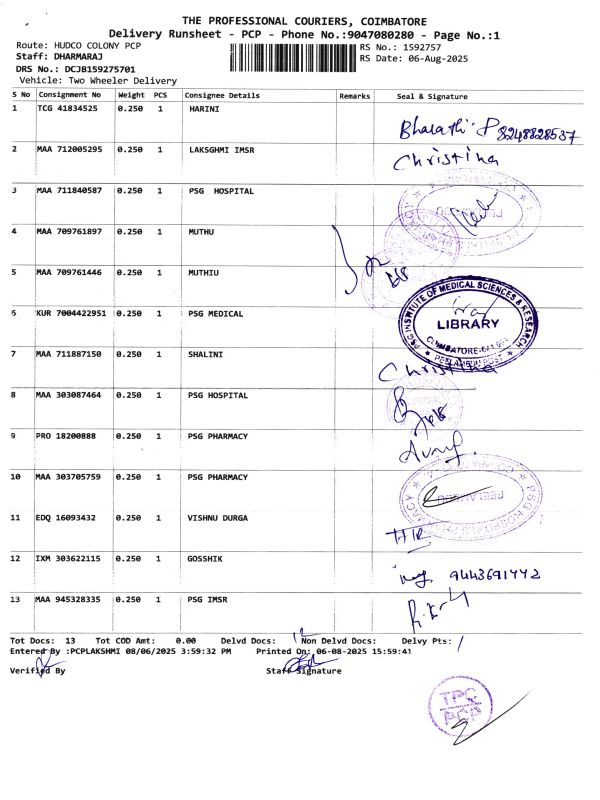 THE PROFESSIONAL COURIERS, COIMBATORE
Delivery Runsheet - PCP - Phone No.:9047080280 - Page No.:1
Route: HUDCO COLONY PCP RS No.: 1592757
Staff: DHARMARAJ RS Date: 06-Aug-2025
DRS No.: DCJB159275701
Vehicle: Two Wheeler Delivery
S No Consignment No Weight PCS Consignee Details Remarks Seal & Signature
1 TCG 41834525 0.250 1 HARINI
Bharathi. P 8248828537
2 MAA 712005295 0.250 1 LAKSGHMI IMSR
Christina
3 MAA 711840587 0.250 1 PSG HOSPITAL
4 MAA 709761897 0.250 1 MUTHU
5 MAA 709761446 0.250 1 MUTHIU
6 KUR 7004422951 0.250 1 PSG MEDICAL
PSG INSTITUTE OF MEDICAL SCIENCES & RESEARCH
LIBRARY
COIMBATORE-641 004
PEELAMEDU POST
7 MAA 711887150 0.250 1 SHALINI
Christina
8 MAA 303087464 0.250 1 PSG HOSPITAL
9 PRO 18200888 0.250 1 PSG PHARMACY
10 MAA 303705759 0.250 1 PSG PHARMACY
PSG HOSPITALS PHARMACY
PEELAMEDU
11 EDQ 16093432 0.250 1 VISHNU DURGA
12 IXM 303622115 0.250 1 GOSSHIK
9443691442
13 MAA 945328335 0.250 1 PSG IMSR
Tot Docs: 13 Tot COD Amt: 0.00 Delvd Docs: 12 Non Delvd Docs: 1 Delvy Pts:
Entered By :PCPLAKSHMI 08/06/2025 3:59:32 PM Printed On: 06-08-2025 15:59:41
Verified By Staff Signature
TPC
PCP